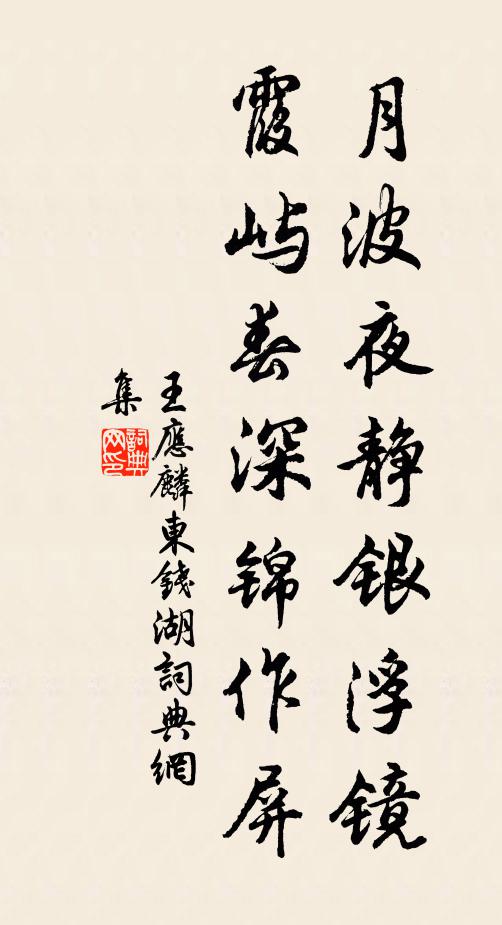 月波夜静银浮镜
霞屿春深锦作屏
王應麟東錢湖詞典網
集
詞典网印